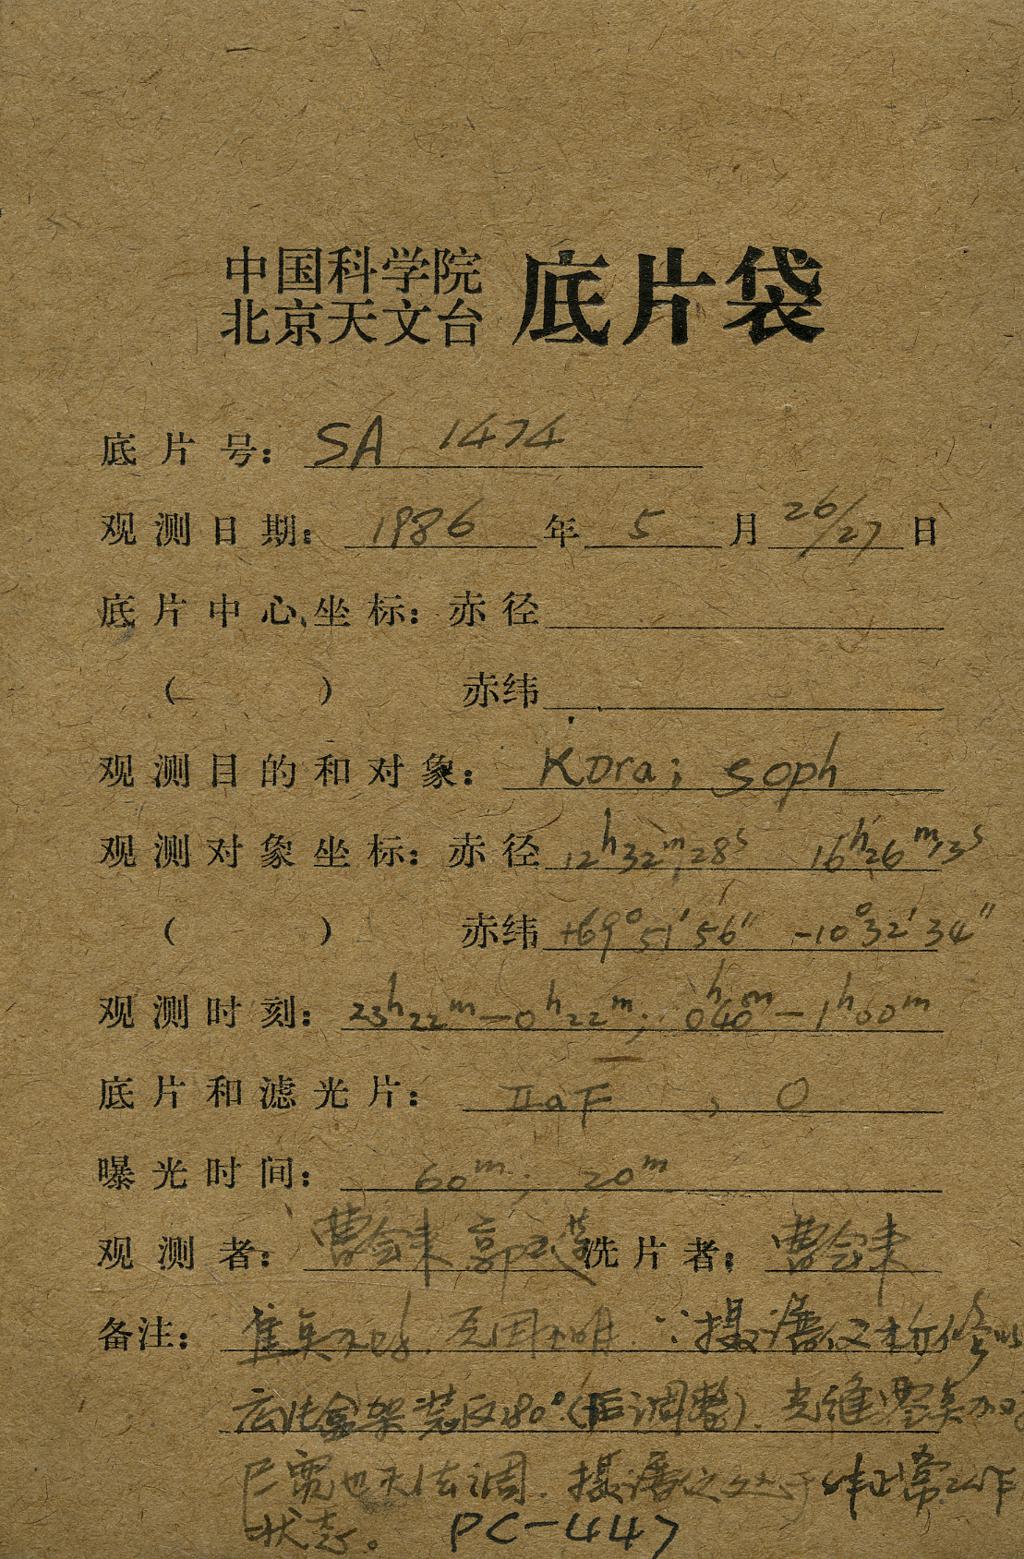 中国科学院
北京天文台 底片袋
底片号: SA 1474
观测日期: 1986 年 5 月 26/27 日
底片中心坐标: 赤径
( ) 赤纬
观测目的和对象: KDra; soph
观测对象坐标: 赤径 12h32m28s 16h26m13s
( ) 赤纬 +69°51′56″ -10°32′34″
观测时刻: 23h22m—0h22m; 0h40m—1h00m
底片和滤光片: IIaF , 0
曝光时间: 60m; 20m
观测者: 曹 郭 洗片者: 曹
备注: 焦 不 . 原因不明. ∵ 摄谱仪 检修
底片盒架装反180°(后调整). 光
也无法调. 摄谱仪处于 非正常工作
状态。 PC-447